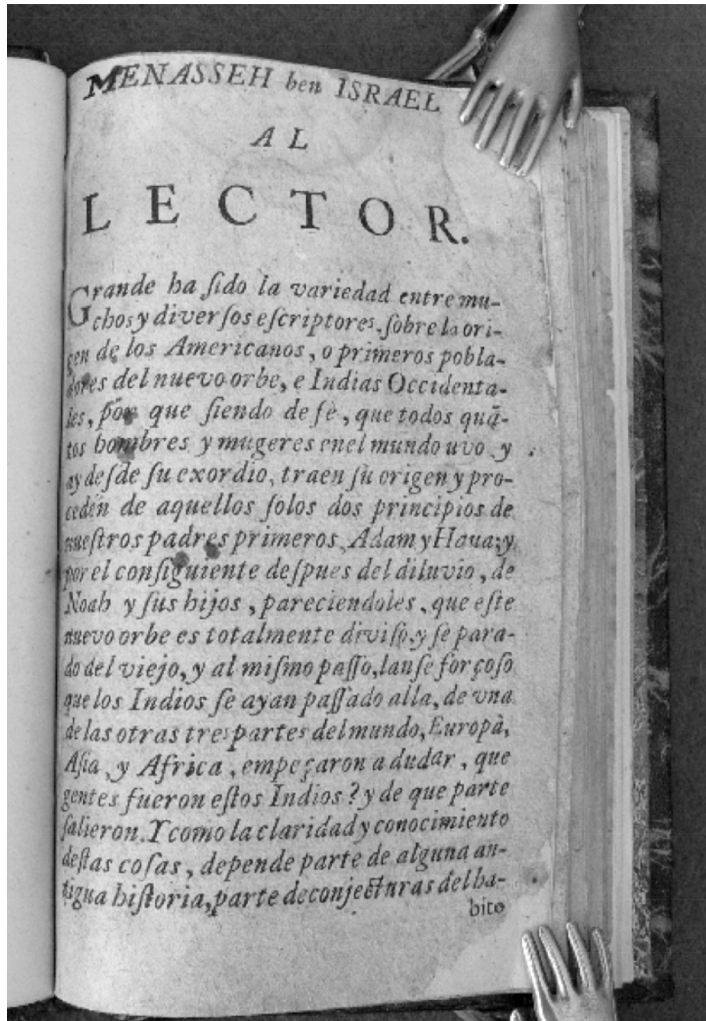 MENASSEH ben ISRAEL
AL
LECTOR.
Grande ha ſido la variedad entre mu-
chos y diverſos eſcriptores, ſobre la ori-
gen de los Americanos, o primeros pobla-
dores del nuevo orbe, e Indias Occidenta-
les, pōr que ſiendo de fè, que todos quā-
tos hombres y mugeres enel mundo uvo y
ay deſde ſu exordio, traen ſu origen y pro-
cedén de aquellos ſolos dos principios de
nueſtros padres primeros, Adam y Haua; y
por el conſiguiente deſpues del diluvio, de
Noah y ſus hijos, pareciendoles, que eſte
nuevo orbe es totalmente diviſo, y ſe para-
do del viejo, y al miſmo paſſo, ſe forçoſo
que los Indios ſe ayan paſſado alla, de vna
de las otras tres partes del mundo, Europà,
Aſia, y Africa, empeçaron a dudar, que
gentes fueron eſtos Indios? y de que parte
ſalieron. Y como la claridad y conocimiento
deſtas coſas, depende parte de alguna an-
tigua hiſtoria, parte de conjecturas del ha-
bito